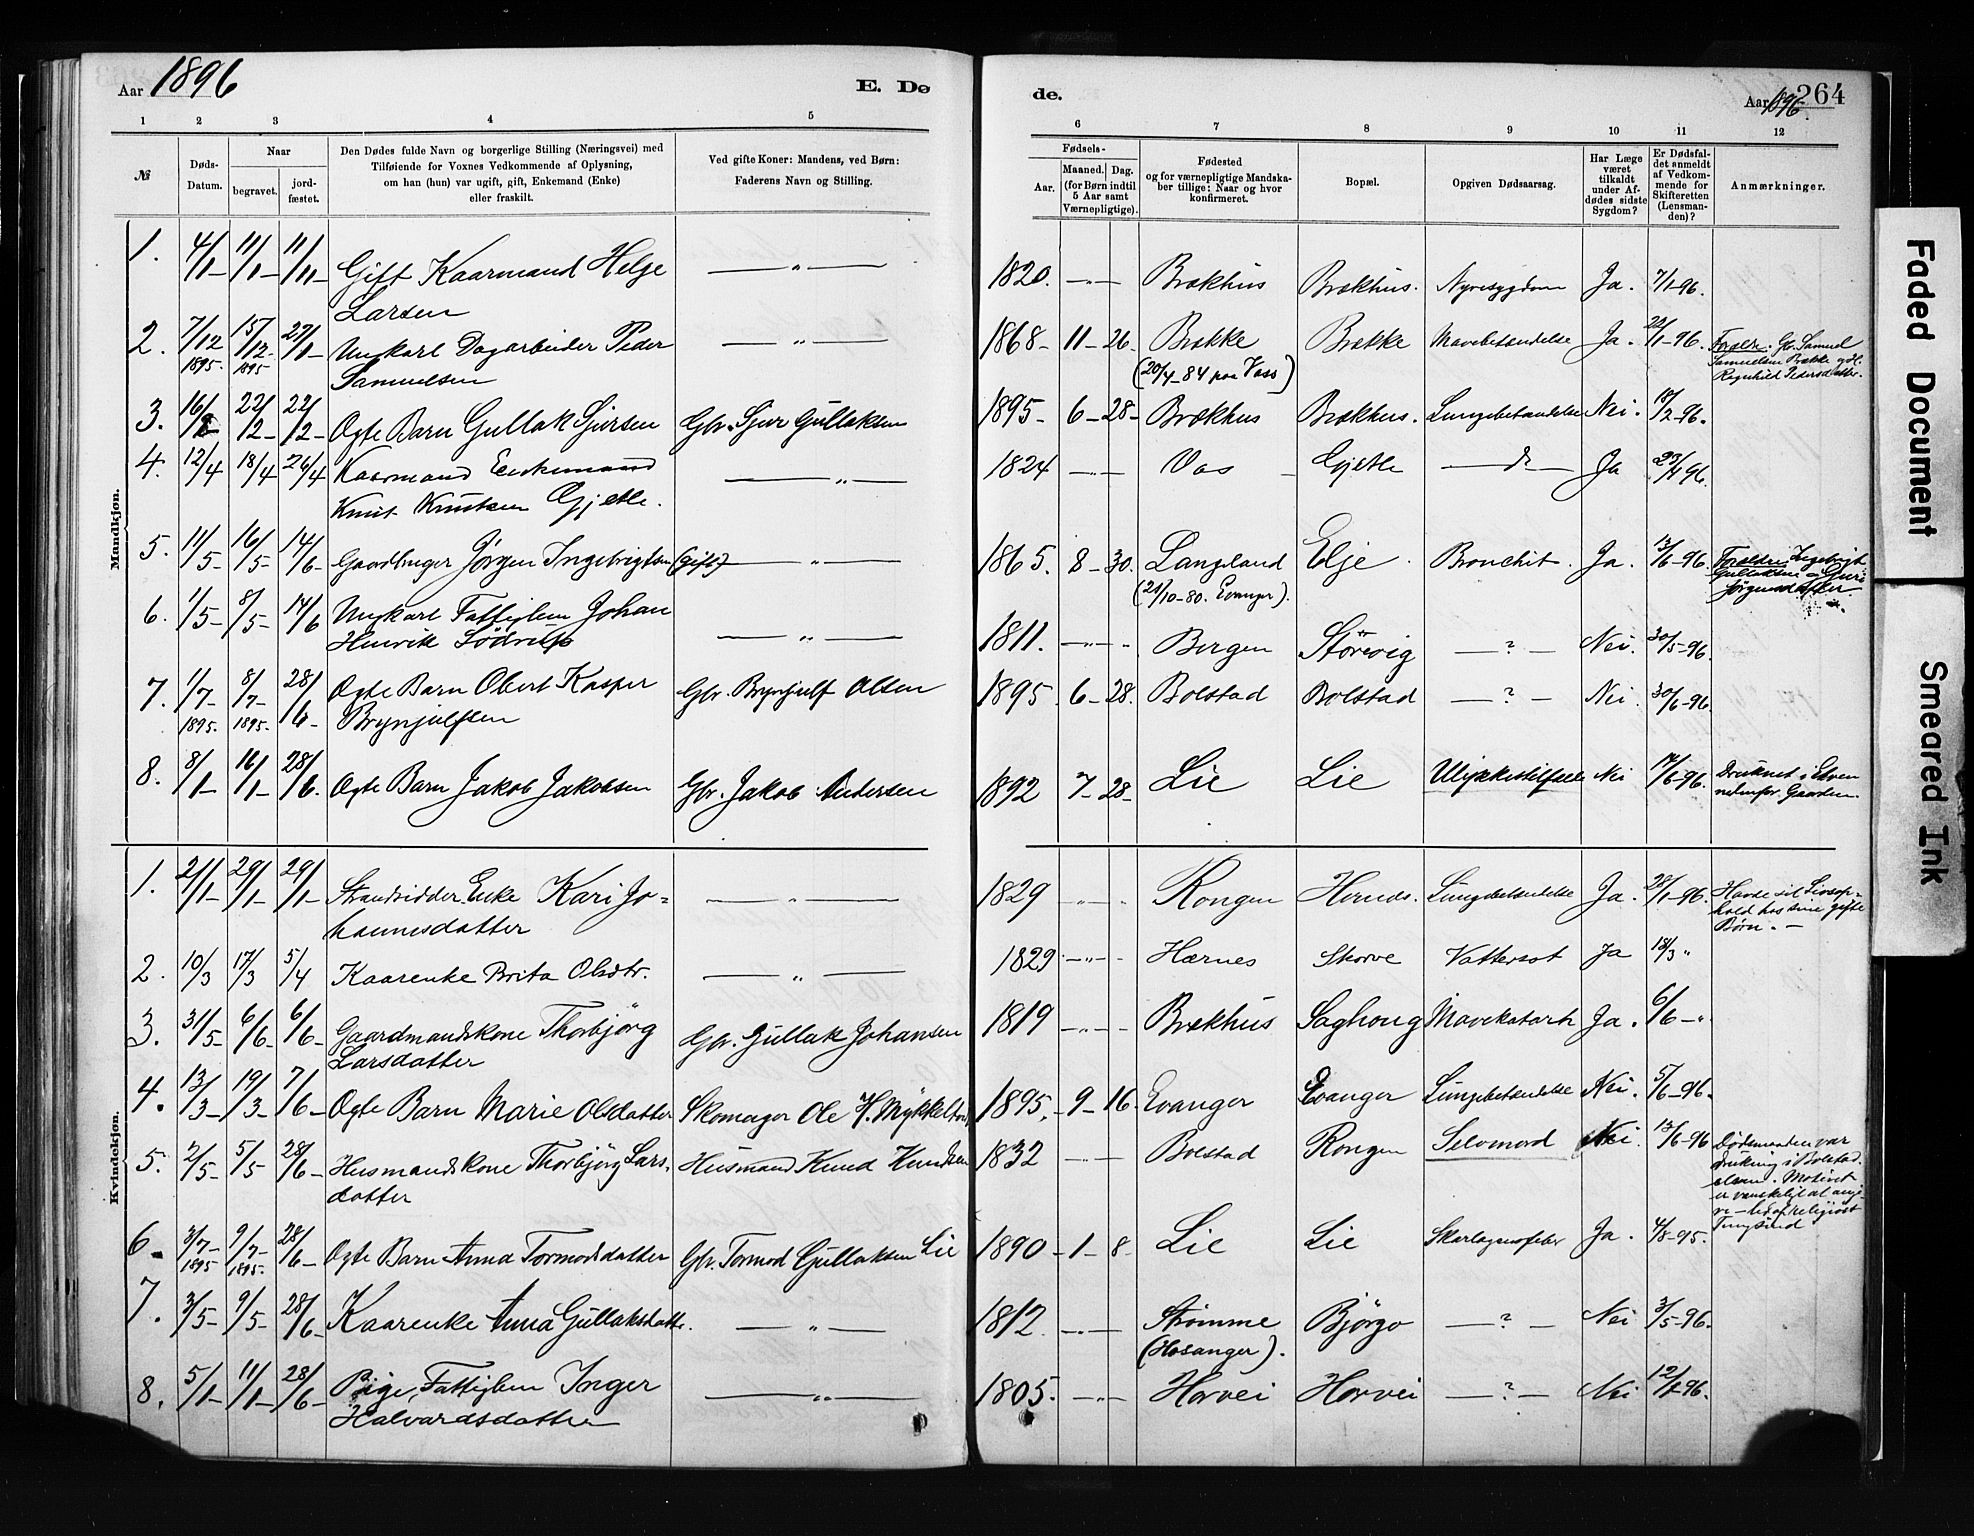 Aar 1896
E. Dø
de.
Aar 1896
264
1 2 3 4 5
6 7 8 9 10 11 12
№
Døds-
Datum.
Naar
begravet.
jord-
fæstet.
Den Dødes fulde Navn og borgerlige Stilling (Næringsvei) med
Tilføiende for Voxnes Vedkommende af Oplysning,
om han (hun) var ugift, gift, Enkemand (Enke)
eller fraskilt.
Ved gifte Koner: Mandens, ved Børn:
Faderens Navn og Stilling.
Fødsels-
Aar.
Maaned. Dag.
(for Børn indtil
5 Aar samt
Værnepligtige).
Fødested
og for værnepligtige Mandska-
ber tillige: Naar og hvor
konfirmeret.
Bopæl.
Opgiven Dødsaarsag.
Har Læge
været
tilkaldt
under Af-
dødes sidste
Sygdom?
Er Dødsfal-
det anmeldt
af Vedkom-
mende for
Skifteretten
(Lensman-
den)?
Anmærkninger.
Mandkjøn.
1. 4/1 11/1 11/11 Gift Kaarmand Helge
Larsen
— " —
1820. — " — Brækhus Brækhus. Nyresygdom Ja. 7/1-96.
2. 7/12 1895. 15/12 1895 27/1 Ungkarl Dagarbeider Peder
Samuelsen
— " —
1868- 11- 26. Brække Brække Mavebetændelse Ja. 22/1-96.
(20/4-84 paa Voss)
Forældre. Gb. Samuel
Samuelsen Brække og H.
Ragnhild Pedersdatter.
3. 16/2 22/2 22/2 Ægte Barn Gullak Sjursen Gbr. Sjur Gullaksen
1895- 6- 28- Brækhus Brækhus. Lungebetændelse Nei. 18/2-96.
4. 12/4 18/4 26/4 Kaarmand Enkemand
Knut Knutsen Gjelle.
— " —
1824 — " — Vos Gjelle — d — Ja 23/4 96.
5. 11/5 16/5 14/6 Gaardbruger Jörgen Ingebrigtsen (Gift) — " —
1865. 8- 30. Langeland Elje. Bronchit. Ja. 13/6-96.
(21/10-80. Evanger).
Forældre: Ingebrigt
Gullaksen og Guri
Jörgensdatter
6. 1/5 8/5 14/6 Ungkarl Fattiglem Johan
Henrik
— " —
1811. — " — Bergen Störevig — ? — Nei. 30/5-96.
7. 1/7 1895. 8/7 1895. 28/6 Ægte Barn Obert Kasper
Brynjulfsen
Gbr. Brynjulf Olsen
1895. 6- 28. Bolstad Bolstad — ? — Nei. 30/6-96.
8. 8/1 16/1 28/6. Ægte Barn Jakob Jakobsen Gbr. Jakob Andersen
1892 7- 28- Lie Lie Ulykkestilfælde Nei 17/6-96.
Druknet i Elven
nedenfor Gaarden.
Kvindekjøn.
1. 21/1 29/1 29/1 Strandsidder Enke Kari Jo-
hannesdatter
— " —
1829 — " — Rongen Lungebetændelse Ja. 28/1-96.
Havde sit Livsop-
hold hos sine gifte
Børn. —
2. 10/3 17/3 5/4 Kaarenke Brita Olsdtr. — " —
1829 — " — Hærnes Skorve Vattersot Ja 18/3 "
3. 31/5 6/6 6/6 Gaardmandskone Thorbjörg
Larsdatter
Gbr. Gullak Johansen
1819 — " — Brækhus Saghoug Mavekatarh Ja. 6/6 — "
4. 13/3 19/3 7/6 Ægte Barn Marie Olsdatter Skomager Ole H.
1895. 9- 16. Evanger Evanger Lungebetændelse Nei. 5/6-96.
5. 2/5 5/5 28/6 Husmandskone Thorbjörg Lars-
datter
Husmand Knud Knudsen
1832 — " — Bolstad Rongen Selvmord Nei. 13/6-96
Dødsmaaden var
drukning i Bolstad-
elven. Motivet
er vanskeligt at angi-
ve — lidt af religiøst
Tungsind
6. 3/7 1895 9/7 1895. 28/6 Ægte Barn Anna Tormodsdatter Gbr. Tormod Gullaksen Lie
1890 - 1- 8. Lie Lie Skarlagensfeber Ja. 4/8-95.
7. 3/5 9/5 28/6 Kaarenke Anna Gullaksdatter. — " —
1812. — " — Strömme Björgo — ? — Nei 3/5-96.
(Hosanger).
8. 5/1 11/1 28/6 Pige, Fattiglem Inger
Halvardsdatter
— " —
1805. — " — Horvei Horvei — ? — Nei 12/1-96.
Faded Document
Smeared Ink